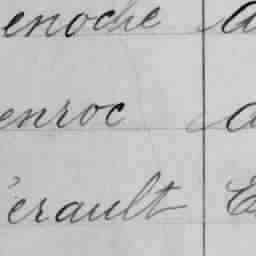 enoche a
enroc a
erault E